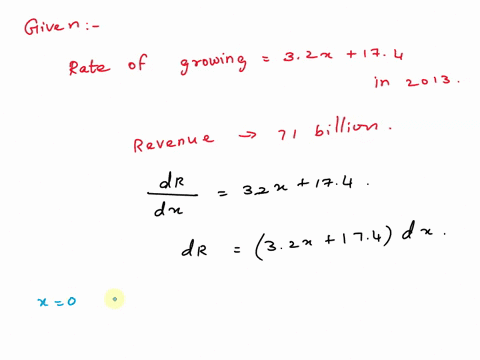 Given:-
Rate of growing = 3.2x + 17.4
in 2013.
Revenue → 71 billion.
dR/dx = 32x + 17.4.
dR = (3.2x + 17.4) dx.
x = 0